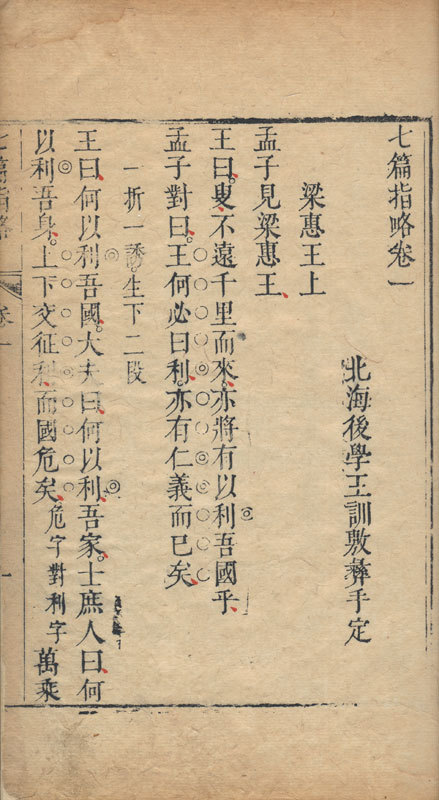 七篇指略卷一
北海後學王訓敷彝手定
梁惠王上
孟子見梁惠王
王曰。叟不遠千里而來。亦將有以利吾國乎
孟子對曰。王何必曰利。亦有仁義而已矣
一折一誘。生下二段
王曰。何以利吾國。大夫曰。何以利吾家。士庶人曰。何
以利吾身。上下交征利。而國危矣。危字對利字 萬乘
七篇指略
卷一
一